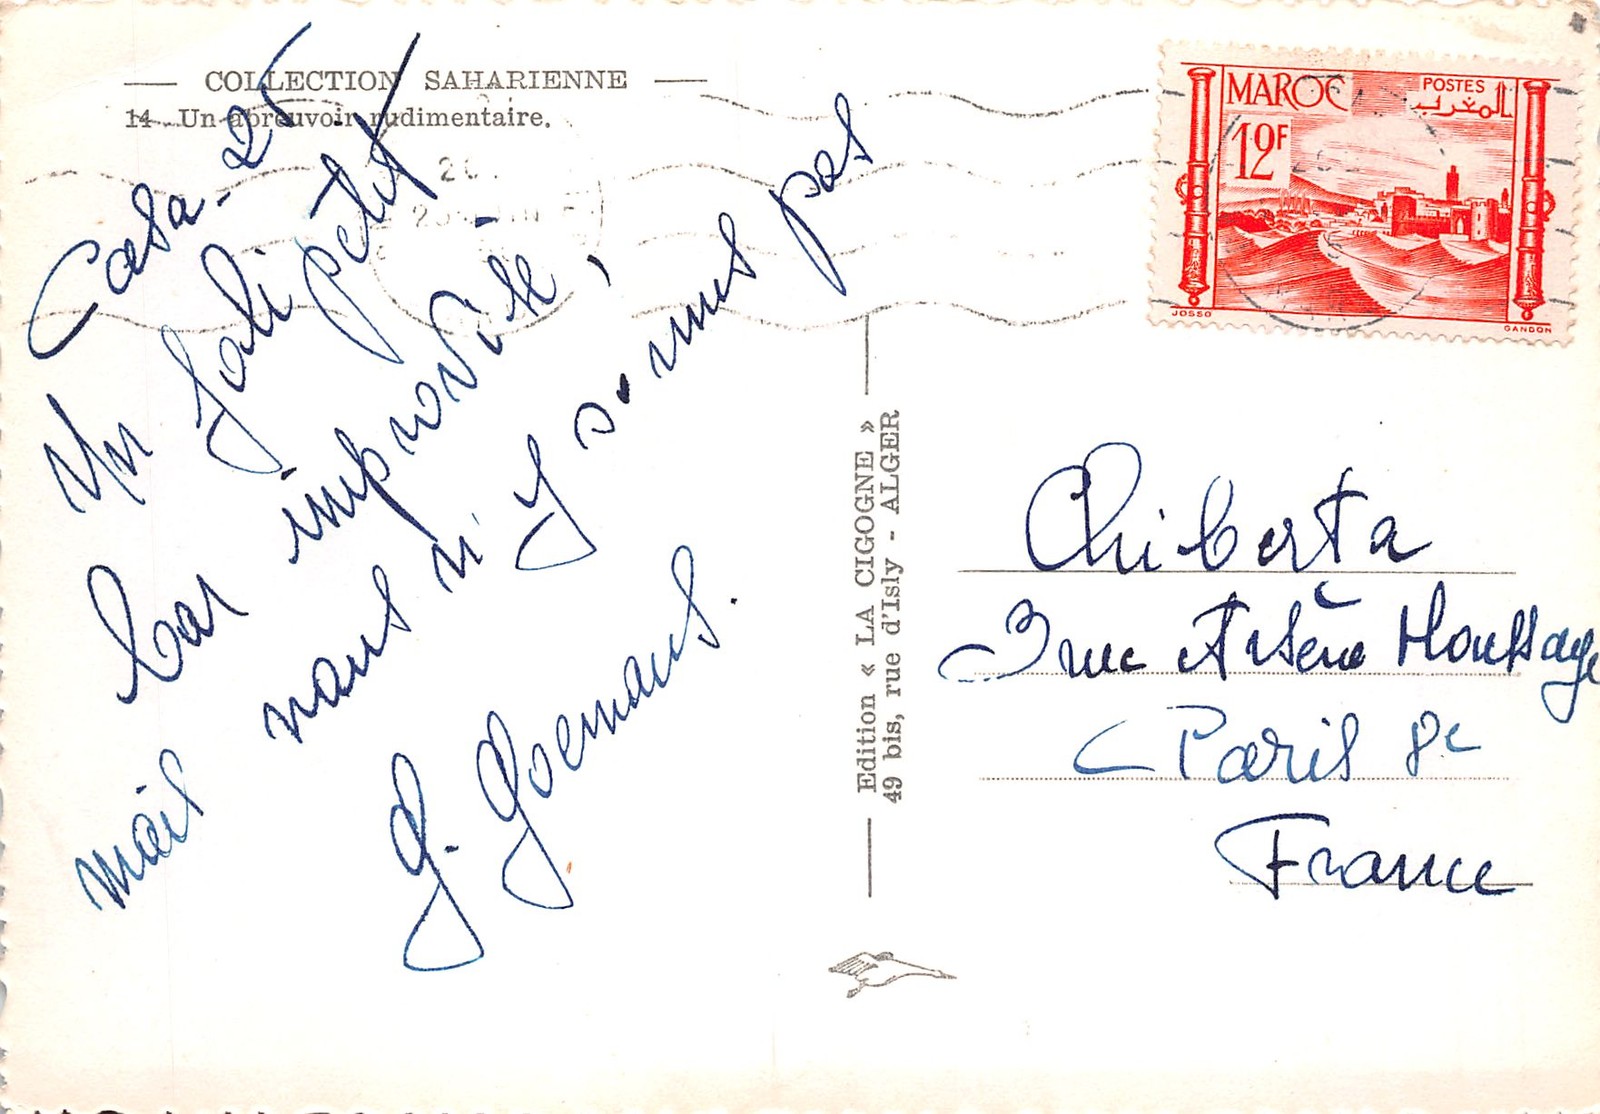 COLLECTION SAHARIENNE
14 - Un abreuvoir rudimentaire.
Casa - 25
Un joli petit
bar improvisé,
mais nous n'y sommes pas
G. Goemans.
Edition « LA CIGOGNE »
49 bis, rue d'Isly - ALGER
MAROC
POSTES
المغرب
12F
JOSSO
GANDON
Chiberta
3 rue Arsène Houssaye
Paris 8e
France